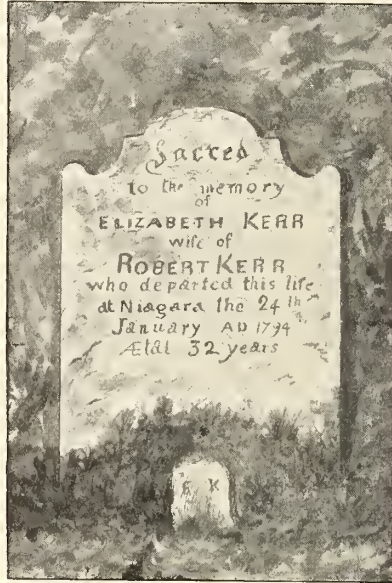 Sacred
to the memory
of
ELIZABETH KERR
wife of
ROBERT KERR
who departed this life
at Niagara the 24th
January AD 1794
Ætat 32 years
E K